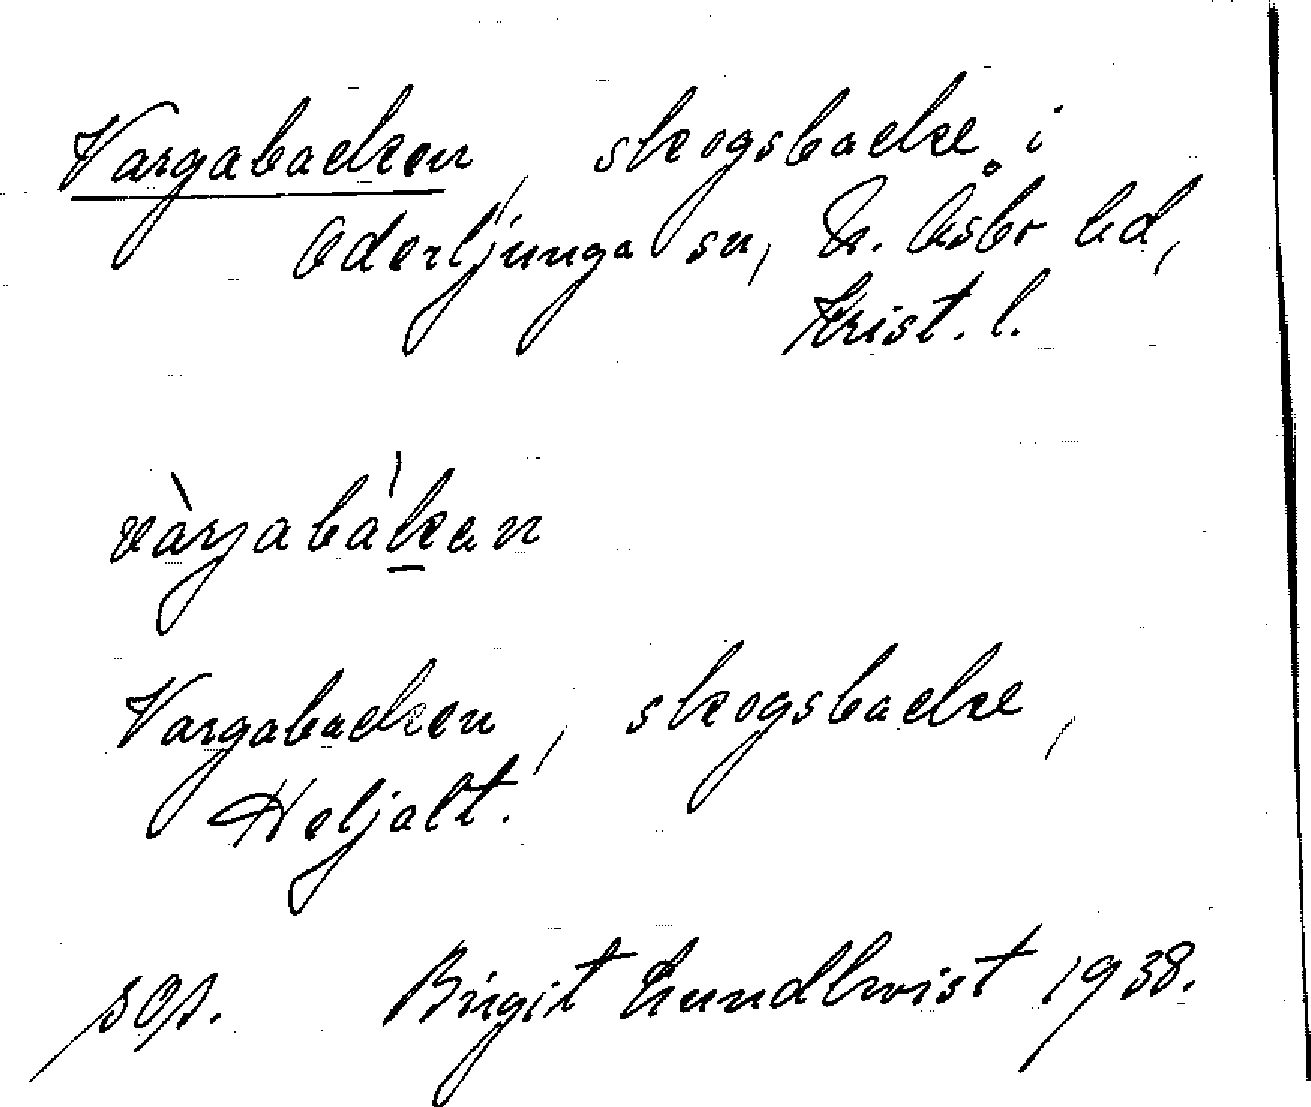 Vargabacken, skogsbacke i
Oderljunga sn, N. Åsbo hd,
Krist. l.
vàrjabák̲an
Vargabacken, skogsbacke,
Heljalt.
sop. Birgit Lundkvist 1938.